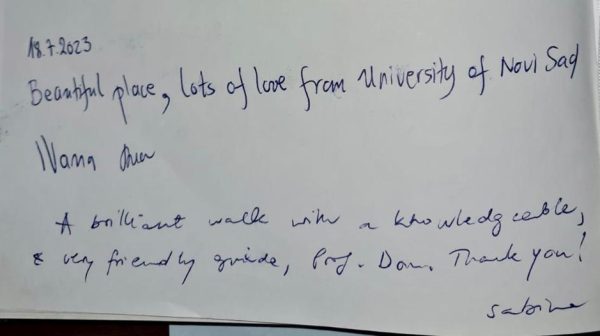 18.7.2023
Beautiful place, lots of love from University of Novi Sad
Ivana
A brilliant walk with a knowledgeable,
& very friendly guide, Prof. Dom. Thank you!
Sabine